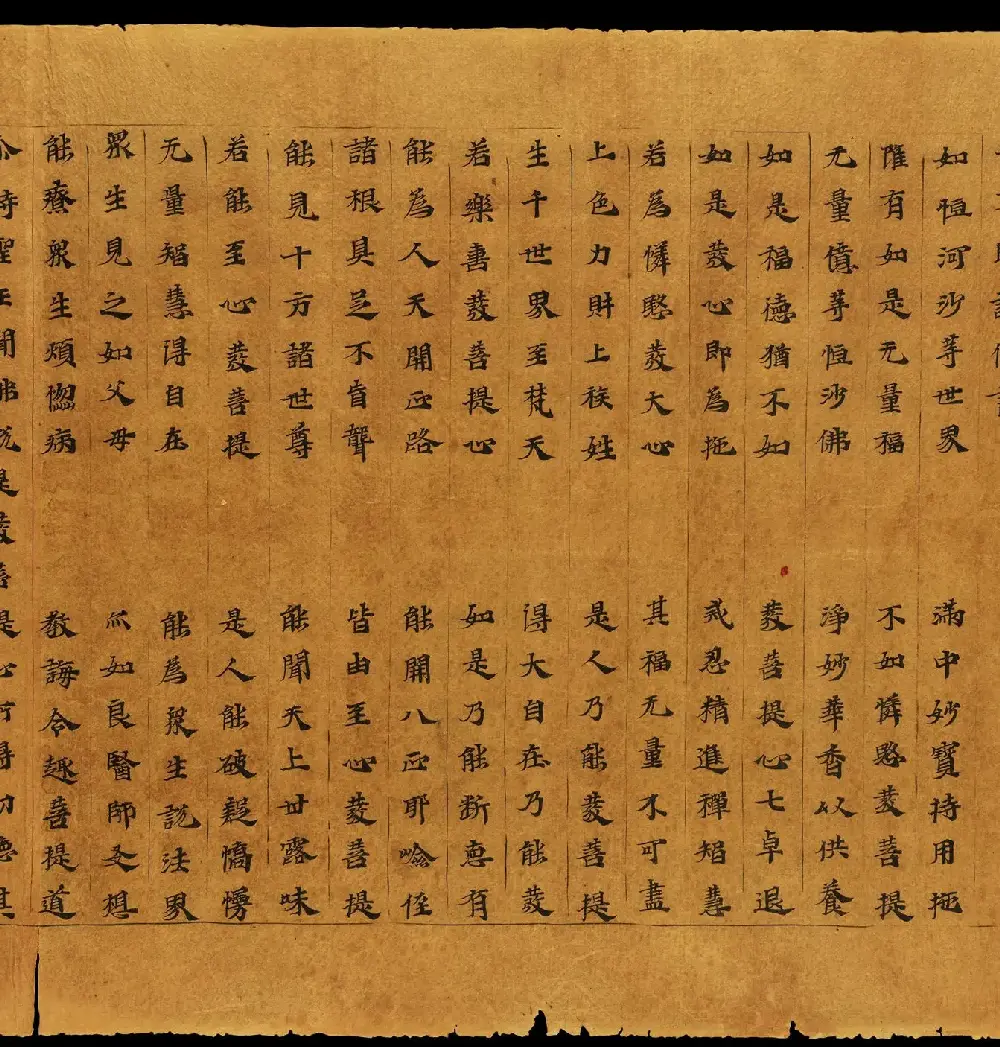 如恒河沙等世界 滿中妙寶持用施
雖有如是无量福 不如憐愍發菩提
无量億等恒沙佛 淨妙華香以供養
如是福德猶不如 發菩提心七卓退
如是發心即為施 戒忍精進禪知慧
若為憐愍發大心 其福无量不可盡
上色力財上族姓 是人乃能發菩提
生千世界至梵天 得大自在乃能發
若樂書發菩提心 如是乃能斷惠有
能為人天開正路 能開八正耶嶮径
諸根具足不盲聾 皆由至心發菩提
能見十方諸世尊 能聞天上甘露味
若能至心發菩提 是人能破疑憍慢
无量知慧得自在 能為眾生說法界
眾生見之如父母 亦如良醫師友想
能療眾生煩惱病 教誨令趣菩提道
聖王聞佛說是發菩提心所得功德其